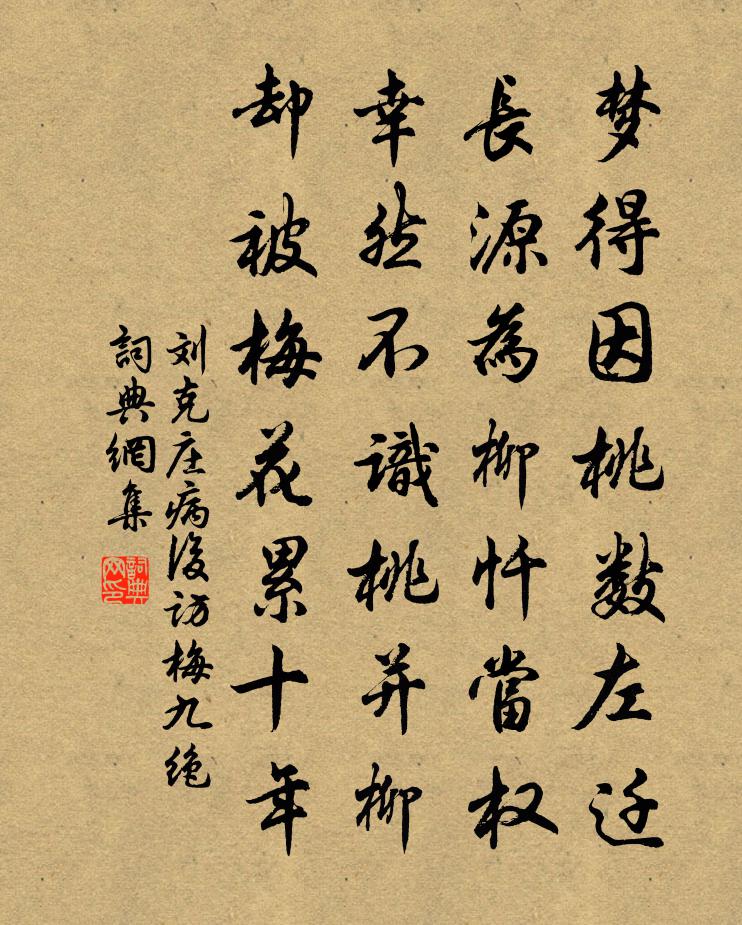 梦得因桃数左迁
長源為柳忤當权
幸然不識桃并柳
却被梅花累十年
刘克庄病後访梅九绝
詞典網集
詞典網印